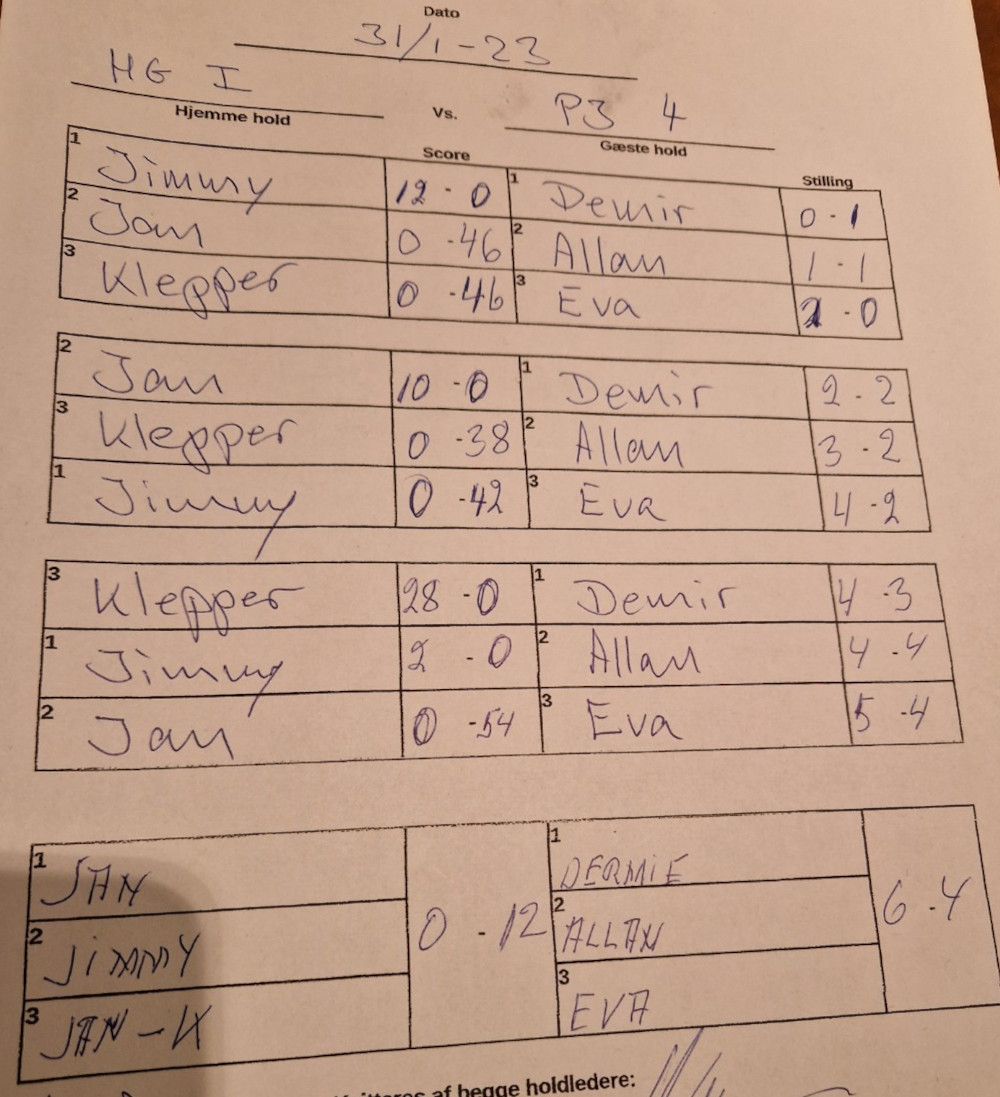 Dato
31/1-23
HG I
Vs.
P3 4
Hjemme hold
Gæste hold
Score
Stilling
1 Jimmy 12 - 0 1 Demir 0 - 1
2 Jan 0 -46 2 Allan 1 - 1
3 Klepper 0 -46 3 Eva 2 - 0
2 Jan 10 -0 1 Demir 2 - 2
3 Klepper 0 -38 2 Allan 3 - 2
1 Jimmy 0 -42 3 Eva 4 -2
3 Klepper 28 -0 1 Demir 4 -3
1 Jimmy 2 - 0 2 Allan 4 -4
2 Jan 0 -54 3 Eva 5 -4
1 JAN 1 DERMIE
2 JIMMY 0 - 12 2 ALLAN 6 -4
3 JAN - 3 EVA
af begge holdledere: